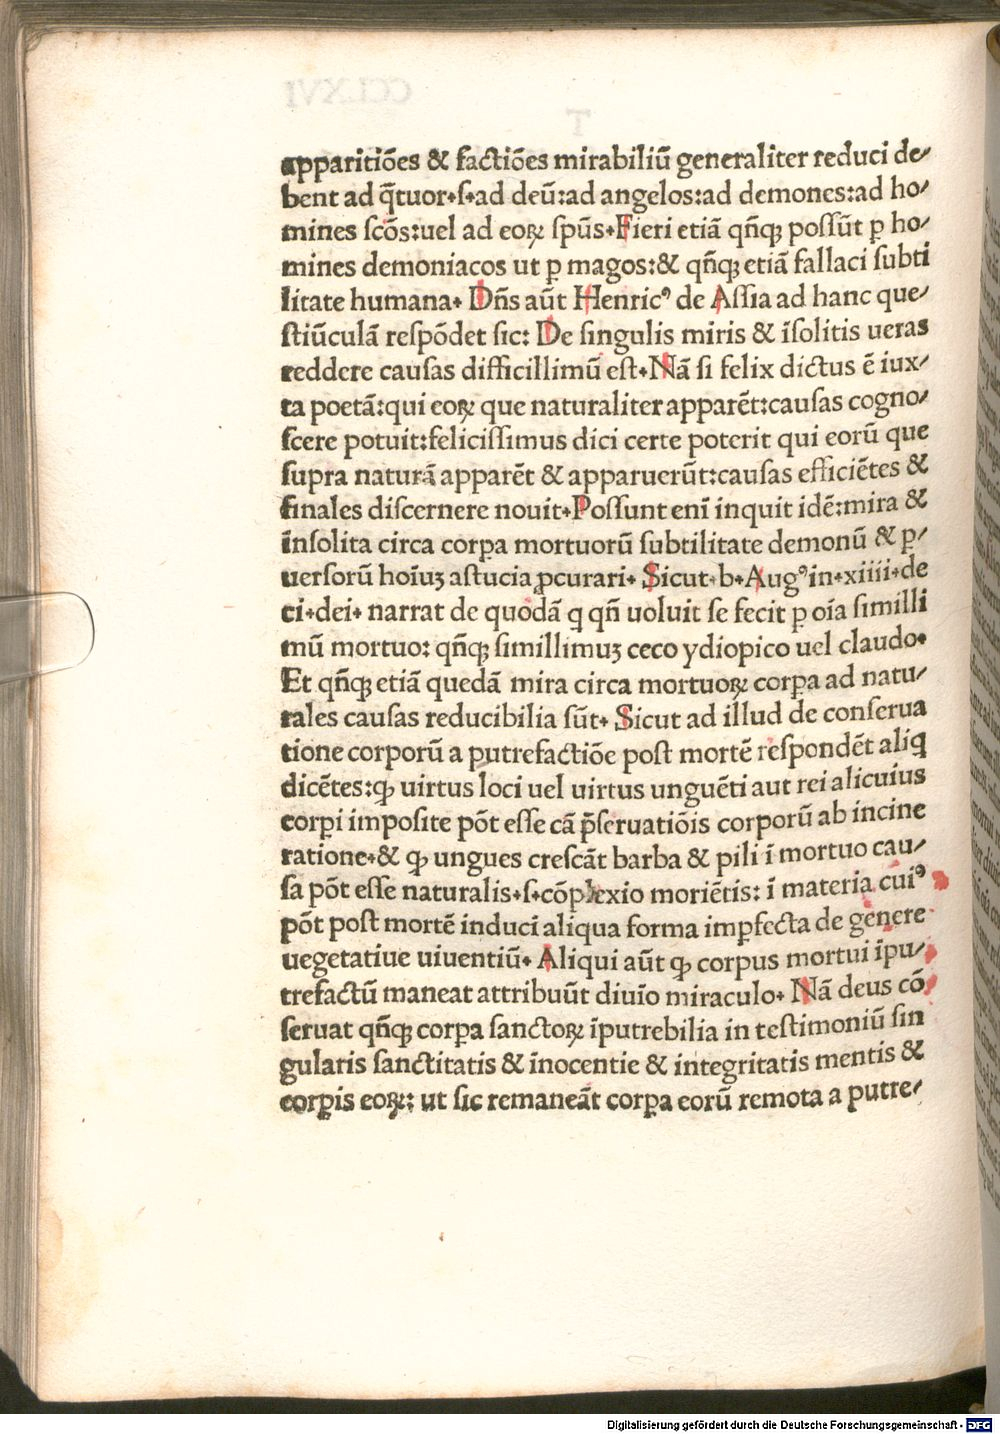 apparitiões & factiões mirabiliū generaliter reduci de⸗
bent ad q̄tuor·ſ·ad deū:ad angelos:ad demones:ad ho⸗
mines ſcōs:uel ad eoꝝ ſpūs·Fieri etiā qñqꝫ poſſūt ꝑ ho⸗
mines demoniacos ut ꝑ magos:& qñqꝫ etiā fallaci ſubti
litate humana· Dñs aūt Henricꝰ de Aſſia ad hanc que⸗
ſtiūculā reſpōdet ſic: De ſingulis miris & īſolitis ueras
reddere cauſas difficillimū eſt·Nā ſi felix dictus ē iux⸗
ta poetā:qui eoꝝ que naturaliter apparēt:cauſas cogno⸗
ſcere potuit:feliciſſimus dici certe poterit qui eorū que
ſupra naturā apparēt & apparuerūt:cauſas efficiētes &
finales diſcernere nouit·Poſſunt enī inquit idē:mira &
īnſolita circa corꝑa mortuorū ſubtilitate demonū & ꝑ⸗
uerſorū hoīuꝫ aſtucia ꝓcurari· Sicut·b·Augꝰin·xiiii·de
ci·dei· narrat de quodā q qñ uoluit ſe fecit ꝑ oīa ſimilli
mū mortuo: qñqꝫ ſimillimuꝫ ceco ydiopico uel claudo·
Et qñqꝫ etiā quedā mira circa mortuoꝝ corꝑa ad natu⸗
rales cauſas reducibilia ſūt· Sicut ad illud de conſerua
tione corporū a putrefactiōe poſt mortē reſpondēt aliq̄
dicētes:ꝙ uirtus loci uel uirtus unguēti aut rei alicuius
corꝑi impoſite pōt eſſe cā p̄ſeruatiōis corporū ab incine
ratione·& ꝙ ungues creſcāt barba & pili ī mortuo cau⸗
ſa pōt eſſe naturalis·ſ·cōplexio moriētis: ī materia cuiꝰ
pōt poſt mortē induci aliqua forma imꝑfecta de genere
uegetatiue uiuentiū· Aliqui aūt ꝙ corpus mortui īpu⸗
trefactū maneat attribuūt diuīo miraculo· Nā deus cō
ſeruat qñqꝫ corꝑa ſanctoꝝ īputrebilia in teſtimoniū ſin
gularis ſanctitatis & īnocentie & integritatis mentis &
corꝑis eoꝝ: ut ſic remaneāt corꝑa eorū remota a putre⸗
Digitalisierung gefördert durch die Deutsche Forschungsgemeinschaft - DFG